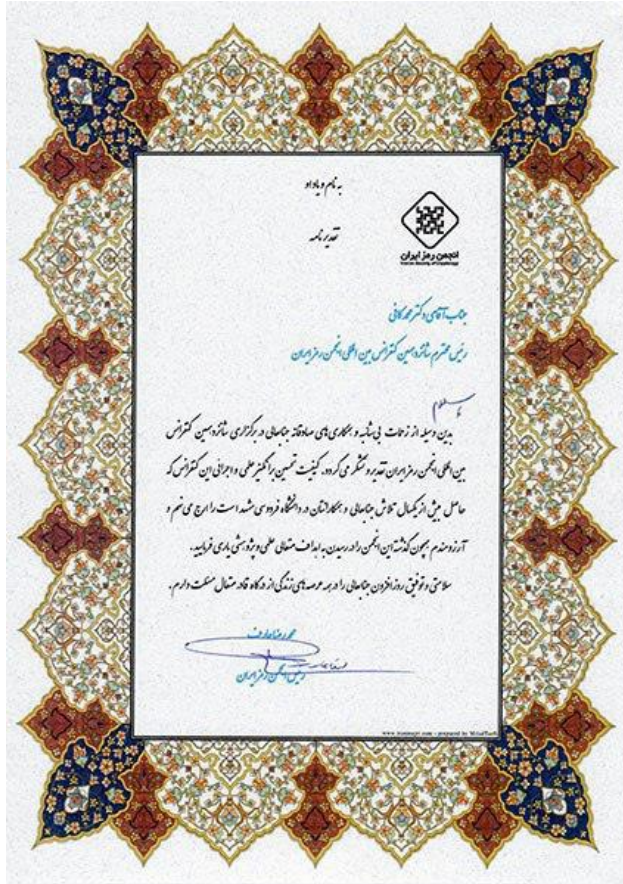 به نام و یاد او
تقدیرنامه
انجمن رمز ایران
Iranian Society of Cryptology
جناب آقای دکتر محمد کافی
رئیس محترم شانزدهمین کنفرانس بین المللی انجمن رمز ایران
با سلام
بدین وسیله از زحمات بی شائبه و همکاری های صادقانه جنابعالی در برگزاری شانزدهمین کنفرانس
بین المللی انجمن رمز ایران تقدیر و تشکر می گردد. کیفیت تحسین برانگیز علمی و اجرائی این کنفرانس که
حاصل بیش از یکسال تلاش جنابعالی و همکارانتان در دانشگاه فردوسی مشهد است را ارج می نهم و
آرزومندم همچون گذشته این انجمن را در رسیدن به اهداف متعالی علمی و پژوهشی یاری فرمایید.
سلامتی و توفیق روزافزون جنابعالی را در همه عرصه های زندگی از درگاه قادر متعال مسئلت دارم.
محمدرضا عارف
رئیس انجمن رمز ایران